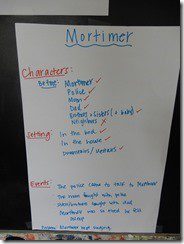 Mortimer
Characters:
Mortimer ✓
Police ✓
Mom ✓
Dad ✓
Brothers + Sisters
Neighbors ✗
Setting: In the bed ✓
In the house ✓
Downstairs / Upstairs ✓
Events: The police came to talk to Mortimer
The mom fought with police
fought with dad
Mortimer was so tired he fell
asleep
Problem: Mortimer kept singing